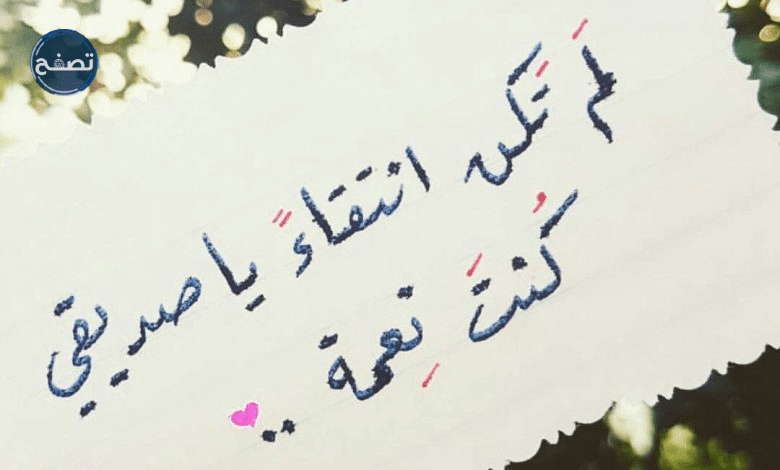 تصفح
لَم تَكن انتقاءً يا صديقي
كُنتَ نِعمة ..